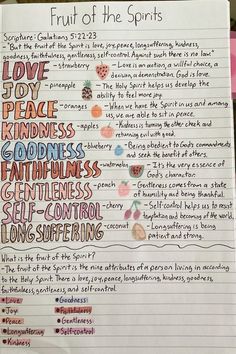 Fruit of the Spirits
Scripture - Galatians 5:22-23
"But the fruit of the Spirit is love, joy, peace, longsuffering, kindness,
goodness, faithfulness, gentleness, self-control. Against such there is no law."
LOVE - strawberry - Love is an motion, a willful choice, a
decision, a demonstration. God is love.
JOY - pineapple - The Holy Spirit helps us develop the
ability to feel more joy.
PEACE - oranges - When we have the Spirit in us and among
us, we are able to sit in peace.
KINDNESS - apples - Kindness is turning the other cheek and
returning evil with good.
GOODNESS - blueberry - Being obedient to God's commandments
and seek the benefit of others.
FAITHFULNESS - watermelon - It's the very essence of
God's character.
GENTLENESS - peach - Gentleness comes from a state
of humility and being thankful.
SELF-CONTROL - cherry - Self control helps us to resist
temptation and becoming of the world.
LONGSUFFERING - coconut - Longsuffering is being
patient and strong.
What is the fruit of the Spirit?
- The fruit of the Spirit is the nine attributes of a person living in according
to the Holy Spirit. There is love, joy, peace, longsuffering, kindness, goodness,
faithfulness, gentleness, and self-control.
Love Goodness
Joy Faithfulness
Peace Gentleness
Longsuffering Self-control
Kindness